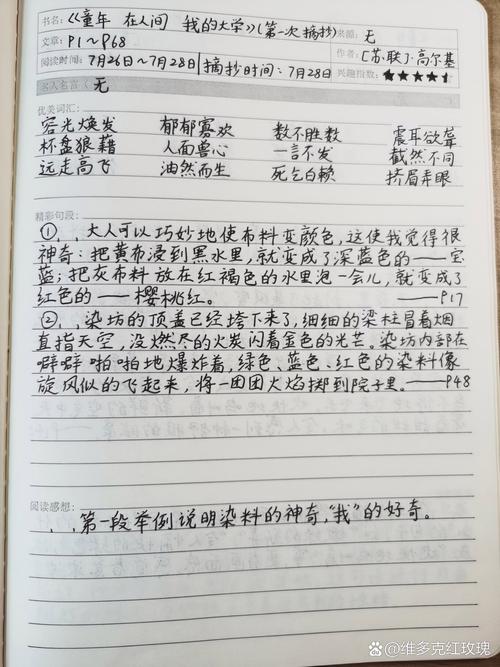 书名:《童年 在人间 我的大学》(第一次摘抄) 来源:无
文章:P1~P68 作者:[苏联]高尔基
阅读时间:7月26日~7月28日 摘抄时间:7月28日 兴趣指数:★★★★★
名人名言:无
优美词汇:
容光焕发 郁郁寡欢 数不胜数 震耳欲聋
杯盘狼藉 人面兽心 一言不发 截然不同
远走高飞 油然而生 死乞白赖 挤眉弄眼
精彩句段:
①、大人可以巧妙地使布料变颜色,这使我觉得很
神奇:把黄布浸到黑水里,就变成了深蓝色的——宝
蓝;把灰布料放在红褐色的水里泡一会儿,就变成了
红色的——樱桃红。 ——P17
②、染坊的顶盖已经垮下来了,细细的梁柱冒着烟
直指天空,没燃尽的火炭闪着金色的光芒。染坊内部在
噼噼啪啪地爆炸着,绿色、蓝色、红色的染料像
旋风似的飞起来,将一团团火焰掷到院子里。——P48
阅读感想:
第一段举例说明染料的神奇,“我”的好奇。
@维多克红玫瑰